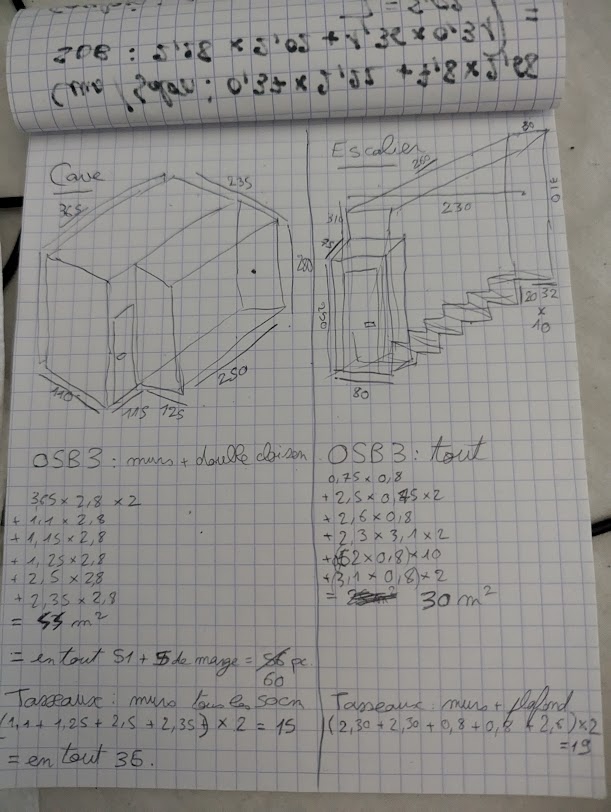 Cave
365
235
280
250
110
115
125
OSB3 : murs + double cloison
3,65 x 2,8 x 2
+ 1,1 x 2,8
+ 1,15 x 2,8
+ 1,25 x 2,8
+ 2,5 x 2,8
+ 2,35 x 2,8
= m²
= en tout 51 + 5 de marge =
60
Tasseaux : murs tous les 50cm
(1,1 + 1,25 + 2,5 + 2,35) x 2 = 15
= en tout 36.
Escalier
80
260
310
230
310
75
250
20 32
x
10
80
OSB3 : tout
0,75 x 0,8
+ 2,5 x 0,75 x 2
+ 2,6 x 0,8
+ 2,3 x 3,1 x 2
+ (52 x 0,8) x 10
+ (3,1 x 0,8) x 2
= 30 m²
Tasseaux : murs + plafond
(2,30 + 2,30 + 0,8 + 0,8 + 2,6) x 2
= 19